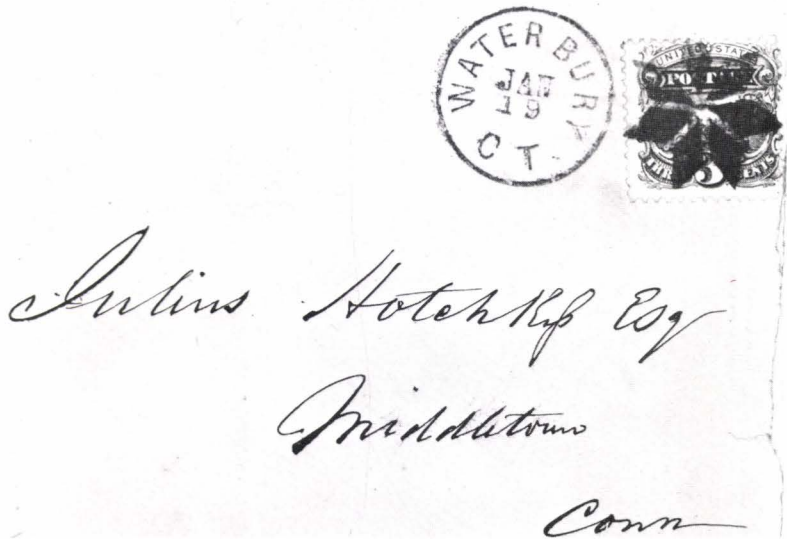 WATERBURY
JAN
19
CT
UNITED STATES
POSTAGE
THREE 3 CENTS
Julius Hotchkiss Esq
Middletown
Conn